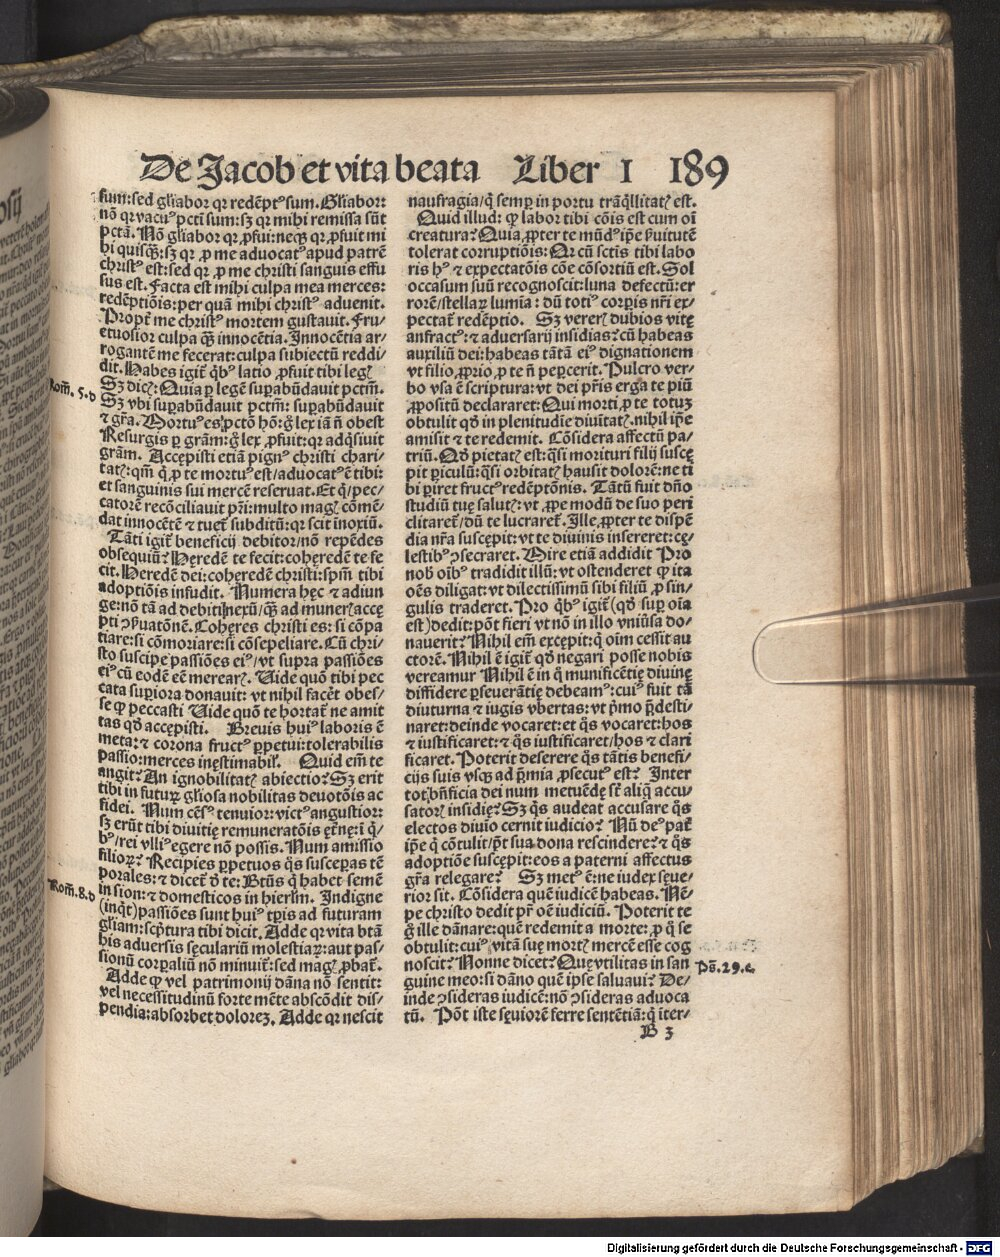 De Jacob et vita beata Liber I 189
sum: sed gl̃iabor qr redẽptꝰ sum. Gl̃iabor:
nõ qr vacuꝰ pcti sum: sꝫ qr mihi remissa sũt
pctã. Nõ gl̃iabor qr ꝓfui: neqꝫ qr ꝓfuit mi
hi quisqꝫ: sꝫ qr ꝓ me aduocatꝰ apud patrẽ
christꝰ est: sed qr ꝓ me christi sanguis effu
sus est. Facta est mihi culpa mea merces:
redẽptiõis: per quã mihi christꝰ aduenit.
Propt̃ me christꝰ mortem gustauit. Fru⸗
ctuosior culpa qꝫ̃ innocẽtia. Innocẽtia ar⸗
rogantẽ me fecerat: culpa subiectũ reddi
dit. Habes igit̃ qͥbꝰ latio ꝓfuit tibi legꝭ
Sꝫ dicꝭ: Quia ꝑ legẽ suꝑabũdauit pctm̃.
Rom̃. 5. d
Sꝫ vbi suꝑabũdauit pctm̃: suꝑabũdauit
⁊ gr̃a. Mortuꝰ es pctõ hõ: g̊ lex iã ñ obest
Resurgis ꝑ gr̃am: g̊ lex ꝓfuit: qr adq̃siuit
gr̃am. Accepisti etiã pignꝰ christi chari⸗
tatꝭ: qm̃ q̃ ꝓ te mortuꝰ est/ aduocatꝰ ẽ tibi:
et sanguinis sui mercẽ reseruat. Et q̃/ pec⸗
catorẽ recõciliauit pr̃i: multo magꝭ cõmẽ⸗
dat innocẽtẽ ⁊ tuet̃ subditũ: qr scit inoxiũ.
Tãti igit̃ beneficij debitor/ nõ repẽdes
obsequiũ? Heredẽ te fecit: coheredẽ te fe
cit. Heredẽ dei: coheredẽ christi: spm̃ tibi
adoptiõis infudit. Numera hęc ⁊ adiun
ge: nõ tã ad debiti nexũ/ qꝫ̃ ad munerꝭ accę
pti ꝯseruatõnẽ. Coheres christi es: si cõpa
tiare: si cõmoriare: si cõsepeliare. Cũ chri⸗
sto suscipe passiões eiꝰ/ vt supra passiões
eiꝰ cũ eodẽ eẽ merearꝭ. Uide quõ tibi pec
cata superiora donauit: vt nihil facẽt obes/
se qꝫ peccasti Uide quõ te hortat̃ ne amit
tas qd̃ accepisti. Breuis huiꝰ laboris ẽ
meta: ⁊ corona fructꝰ ꝑpetui: tolerabilis
passio: merces inęstimabilꝭ. Quid em̃ te
angit? An ignobilitatꝭ abiectio? Sꝫ erit
tibi in futurꝭ gl̃iosa nobilitas deuotõis ac
fidei. Num cẽsꝰ tenuior: victꝰ angustior:
sꝫ erũt tibi diuitię remuneratõis ęt̃nę: ĩ q̃/
bꝰ/ rei vlliꝰ egere nõ possis. Num amissio
filiorꝫ? Recipies ꝑpetuos q̃s susceperas tẽ
porales: ⁊ dicet̃ d̃ te: Btũs q̃ habet semẽ
in sion: ⁊ domesticos in hierlm̃. Indigne
Rom̃. 8. d
(inq̃t) passiões sunt huiꝰ tp̃is ad futuram
gl̃iam: scp̃tura tibi dicit. Adde qꝫ vita btã
his aduersis sęculariũ molestiarꝫ: aut pas⸗
sionũ corꝑaliũ nõ minuit̃: sed magꝭ ꝓbat̃.
Adde qꝫ vel patrimonij dãna nõ sentit:
vel necessitudinũ forte mẽte abscõdit dis⸗
pendia: absorbet dolorez. Adde qr nescit
naufragia/ q̃ semꝑ in portu trãq̃llitatꝭ est.
Quid illud: qꝫ labor tibi cõis est cum oĩ
creatura? Quia, ꝓpter te mũdꝰ ip̃e ẜuitutẽ
tolerat corruptiõis: Qr cũ sctis tibi labo
ris hꝰ ⁊ expectatõis cõe cõsortiũ est. Sol
occasum suũ recognoscit: luna defectũ: er
rorẽ/ stellarꝫ lumĩa: dũ totiꝰ corꝑis nr̃i ex⸗
pectat̃ redẽptio. Sꝫ vererꝭ dubios vitę
anfractꝰ: ⁊ aduersarij insidias? cũ habeas
auxiliũ dei: habeas tãtã eiꝰ dignationem
vt filio, ꝓprio, ꝓ te ñ ꝑpercerit. Pulcro ver⸗
bo vsa ẽ scriptura: vt dei pr̃is erga te piũ
ꝓpositũ declararet: Qui morti ꝓ te totuꝫ
obtulit qd̃ in plenitudĩe diuĩtatꝭ. nihil ip̃e
amisit ⁊ te redemit. Cõsidera affectũ pa⸗
triũ. Qd̃ pietatꝭ est: q̃si morituri filij suscę
pit ꝑiculũ: q̃si orbitatꝭ hausit dolorẽ: ne ti
bi ꝑiret fructꝰ redẽptõnis. Tãtũ fuit dño
studiũ tuę salutꝭ: vt ꝓpe modũ de suo peri
clitaret̃/ dũ te lucraret̃. Ille, ꝓpter te dispẽ
dia nr̃a suscepit: vt te diuinis insereret: cę⸗
lestibꝰ ꝯsecraret. Mire etiã addidit Pro
nob̃ oĩbꝰ tradidit illũ: vt ostenderet qꝫ ita
oẽs diligat: vt dilectissimũ sibi filiũ ꝓ sin⸗
gulis traderet. Pro q̃bꝰ igit̃ (qd̃ suꝑ oĩa
est) dedit: põt fieri vt nõ in illo vniũsa do⸗
nauerit? Nihil em̃ excepit: q̃ oĩm cessit au
ctorẽ. Nihil ẽ igit̃ qd̃ negari posse nobis
vereamur Nihil ẽ in q̃ munificẽtię diuinę
diffidere ꝑseuerãtię debeamꝰ: cuiꝰ fuit tã
diuturna ⁊ iugis vbertas: vt p̃mo p̃desti⸗
naret: deinde vocaret: et q̃s vocaret: hos
⁊ iustificaret: ⁊ q̃s iustificaret/ hos ⁊ clari
ficaret. Poterit deserere q̃s tãtis benefi⸗
cijs suis vsqꝫ ad p̃mia ꝓsecutꝰ est? Inter
tot bñficia dei num metuẽdę st̃ aliq̃ accu⸗
satorꝭ insidię? Sꝫ q̃s audeat accusare q̃s
electos diuĩo cernit iudicio? Nũ deꝰ pat̃
ip̃e q̃ cõtulit/ p̃t sua dona rescindere? ⁊ q̃s
adoptiõe suscepit: eos a paterni affectus
gr̃a relegare? Sꝫ metꝰ ẽ: ne iudex sęue⸗
rior sit. Cõsidera quẽ iudicẽ habeas. Nẽ⸗
pe christo dedit pr̃ oẽ iudiciũ. Poterit te
g̊ ille dãnare: quẽ redemit a morte: ꝓ q̃ se
obtulit: cuiꝰ vitã suę mortꝭ mercẽ esse cog
noscit? Nonne dicet? Quę vtilitas in san
Ps̃. 29. c.
guine meo: si dãno quẽ ip̃se saluaui? De⸗
inde ꝯsideras iudicẽ: nõ ꝯsideras aduoca
tũ. Põt iste sęuiorẽ ferre sentẽtiã: q̃ ĩter⸗
B 3
Digitalisierung gefördert durch die Deutsche Forschungsgemeinschaft - DFG